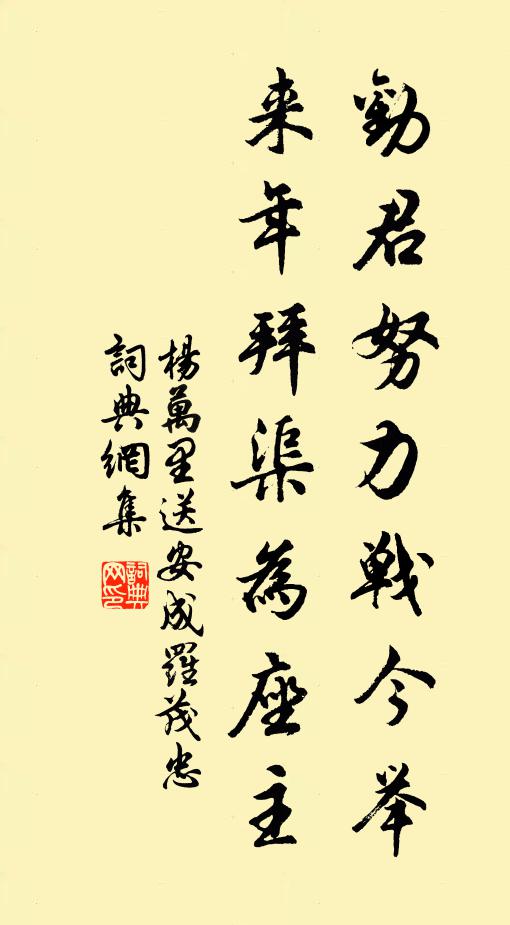 勸君努力戰今举
来年拜渠為座主
楊萬里送安成羅茂忠
詞典網集
詞典
网印